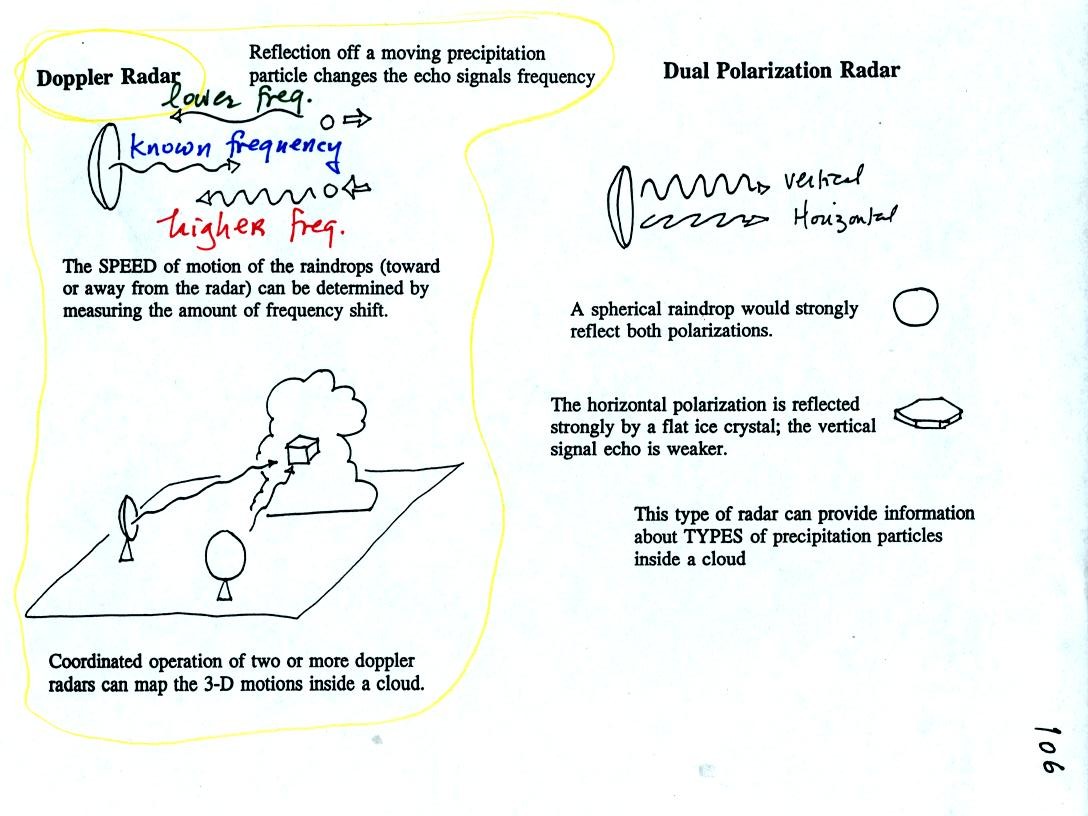 Doppler Radar
Reflection off a moving precipitation
particle changes the echo signals frequency
lower freq.
known frequency
higher freq.
The SPEED of motion of the raindrops (toward
or away from the radar) can be determined by
measuring the amount of frequency shift.
Coordinated operation of two or more doppler
radars can map the 3-D motions inside a cloud.
Dual Polarization Radar
vertical
Horizontal
A spherical raindrop would strongly
reflect both polarizations.
The horizontal polarization is reflected
strongly by a flat ice crystal; the vertical
signal echo is weaker.
This type of radar can provide information
about TYPES of precipitation particles
inside a cloud
106